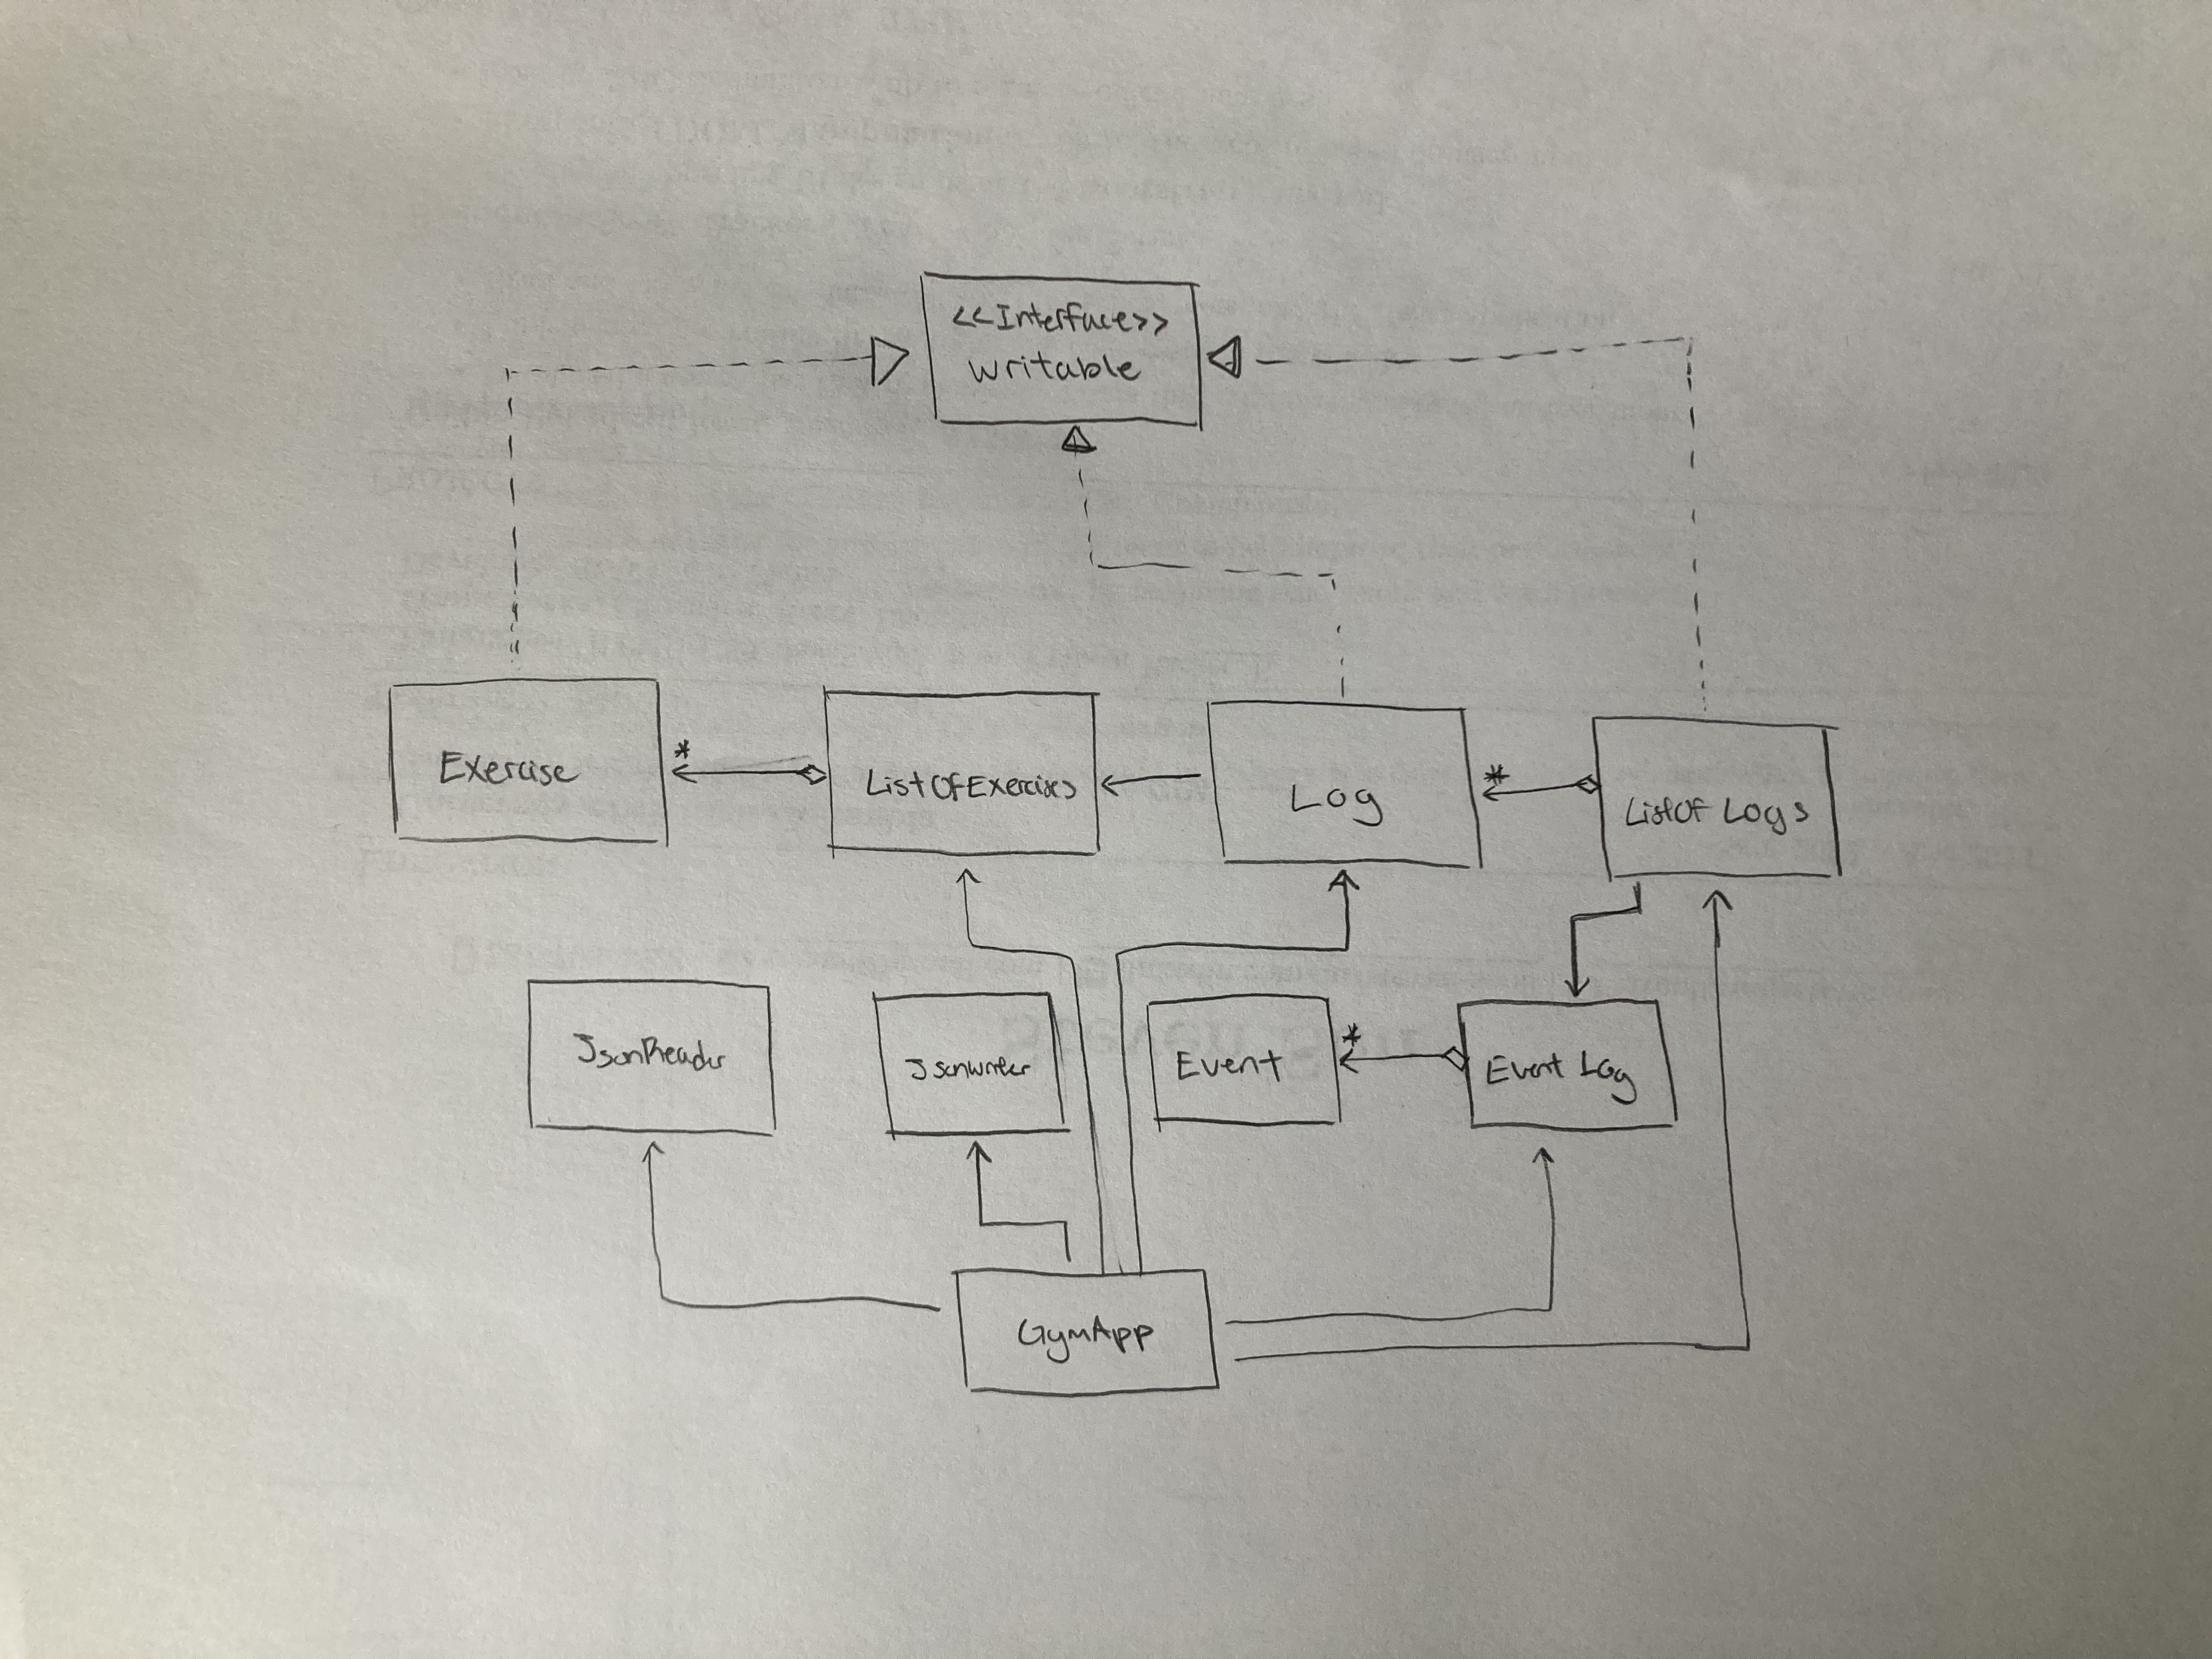 <<Interface>>
Writable
Exercise
*
ListOfExercises
Log
*
ListOf Logs
JsonReader
JsonWriter
Event
*
Event Log
GymApp